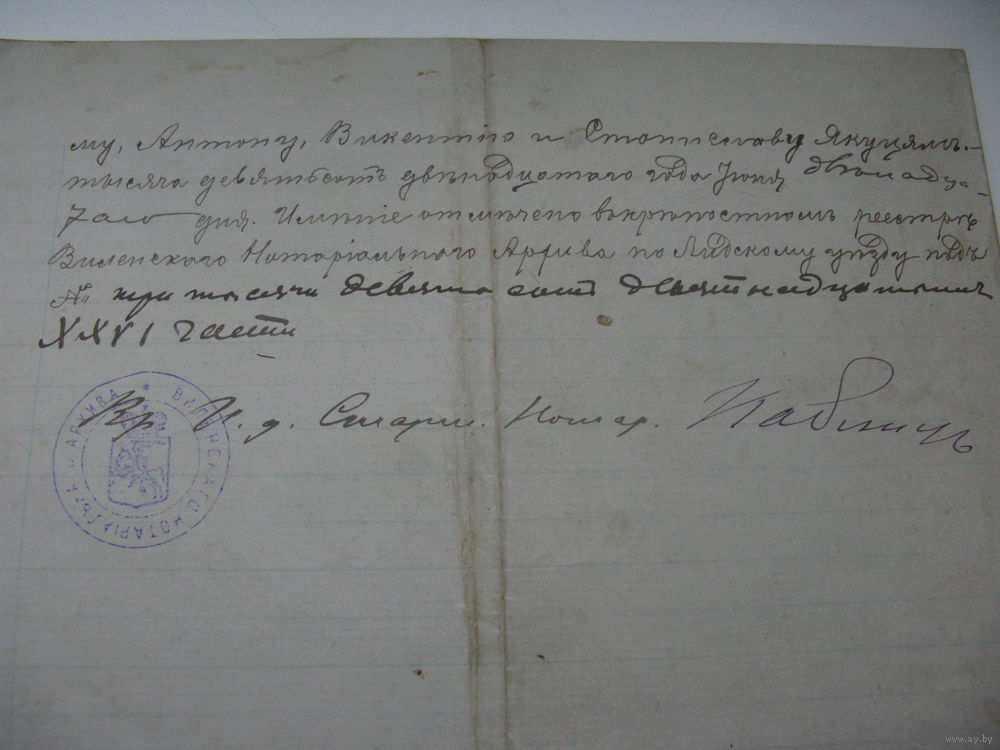 му, Антону, Викентію и Станиславу Якуцямъ.—
тысяча девятьсотъ двѣнадцатаго года Іюня двѣнадца-
таго дня. Имѣніе отмѣчено въ крѣпостномъ реестрѣ
Виленскаго Нотаріальнаго Архива по Лидскому уѣзду подъ
№ три тысячи девятьсотъ девятнадцатымъ
XXVI части
Вр. И. д. Старш. Нотар.
ВИЛЕНСКАГО НОТАРІАЛЬН. АРХИВА
www.ay.by